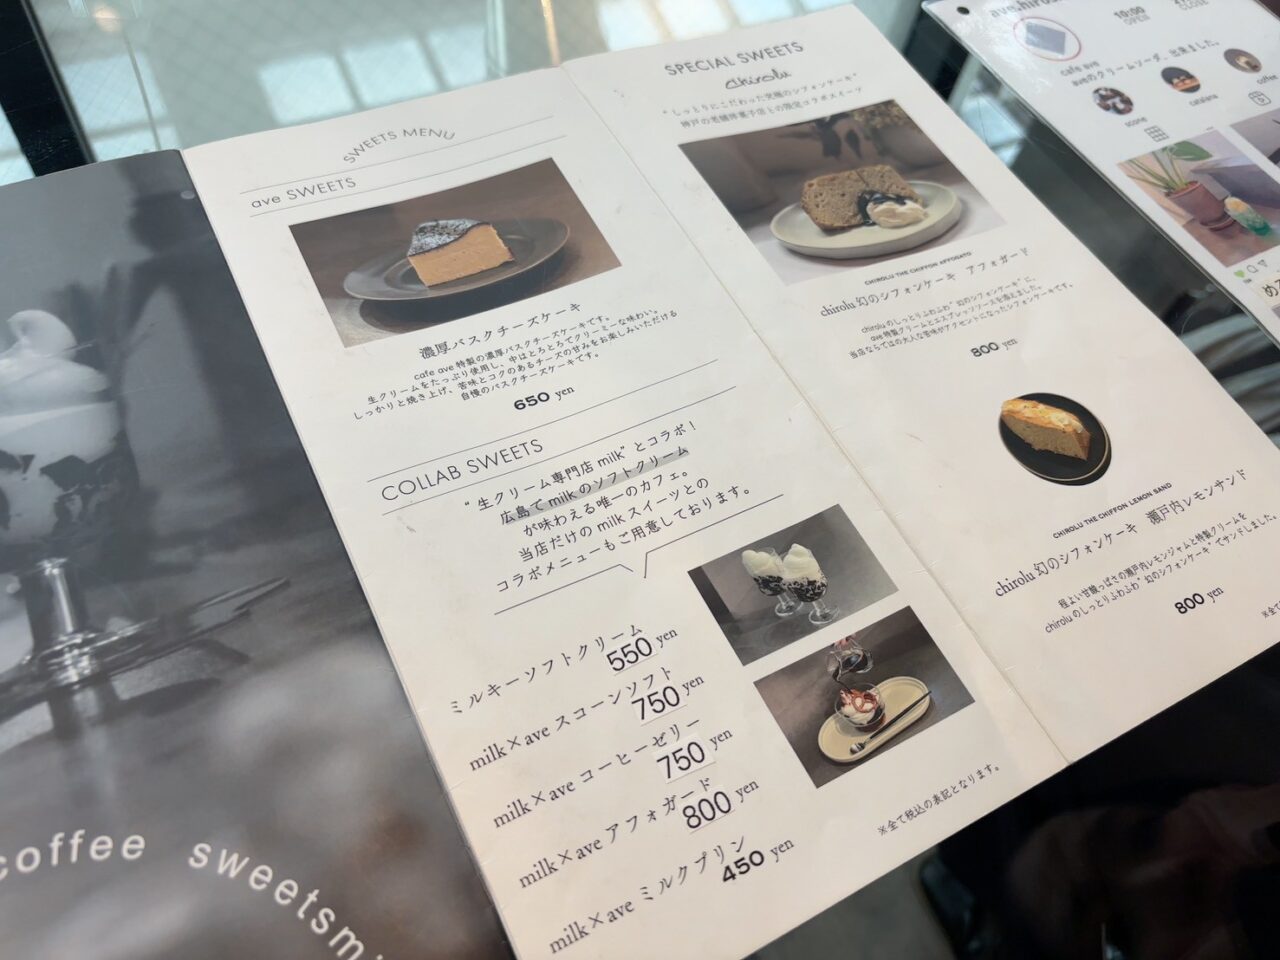 SWEETS MENU
ave SWEETS
濃厚バスクチーズケーキ
cafe ave 特製の濃厚バスクチーズケーキです。
生クリームをたっぷり使用し、中はとろとろでクリーミーな味わい。
しっかりと焼き上げ、苦味とコクのあるチーズの甘みをお楽しみいただける
自慢のバスクチーズケーキです。
650 yen
COLLAB SWEETS
“生クリーム専門店 milk” とコラボ！
広島で milk のソフトクリーム
が味わえる唯一のカフェ。
当店だけの milk スイーツとの
コラボメニューもご用意しております。
ミルキーソフトクリーム
550 yen
milk×ave スコーンソフト
750 yen
milk×ave コーヒーゼリー
750 yen
milk×ave アフォガード
800 yen
milk×ave ミルクプリン
450 yen
※全て税込の表記となります。
SPECIAL SWEETS
chirolu
“しっとりにこだわった究極のシフォンケーキ”
神戸の老舗洋菓子店との限定コラボスイーツ
CHIROLU THE CHIFFON AFFOGATO
chirolu 幻のシフォンケーキ アフォガード
chiroluのしっとりふわふわ“幻のシフォンケーキ”に、
ave 特製クリームとエスプレッソソースを添えました。
当店ならではの大人な苦味がアクセントになったシフォンケーキです。
800 yen
CHIROLU THE CHIFFON LEMON SAND
chirolu 幻のシフォンケーキ 瀬戸内レモンサンド
程よい甘酸っぱさの瀬戸内レモンジャムと特製クリームを
chiroluのしっとりふわふわ“幻のシフォンケーキ”でサンドしました。
800 yen
※全て
coffee sweets
10:00
OPEN
CLOSE
cafe ave
aveのクリームソーダ、出来ました。
scone
catalana
coffee